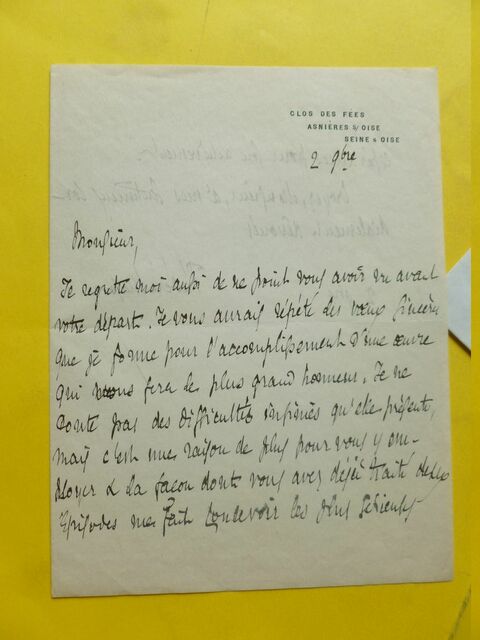 CLOS DES FÉES
ASNIÈRES S/ OISE
SEINE & OISE
2 9bre
Monsieur,
Je regrette moi aussi de ne point vous avoir vu avant
votre départ. Je vous aurais répété les vœux sincères
que je forme pour l'accomplissement d'une œuvre
qui vous fera le plus grand honneur. Je ne
doute pas des difficultés infinies qu'elle présente,
mais c'est une raison de plus pour vous y em-
ployer & la façon dont vous avez déjà traité
épisodes me fait concevoir les plus sérieuses